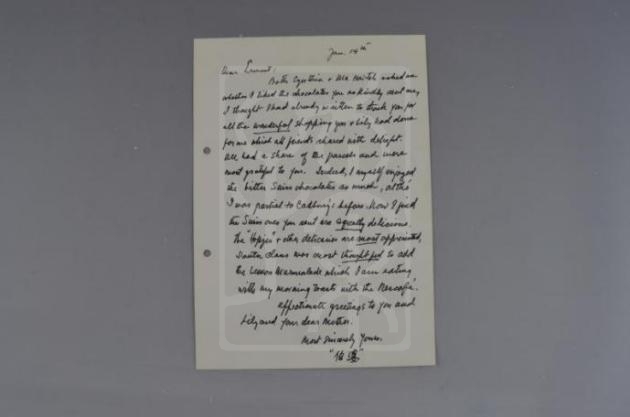 Jan. 14th
Dear Ernest,
Both Cynthia & Ula asked me
whether I liked the chocolates you so kindly sent me,
I thought I had already written to thank you for
all the wonderful shopping you & Lily had done
for me which all friends shared with delight.
We had a share of the parcels and were
most grateful to you. Indeed, I myself enjoyed
the bitter Swiss chocolates so much, altho'
I was partial to Cadbury's before. Now I find
the Swiss ones you sent are equally delicious.
The & other delicacies are most appreciated,
Santa Claus was most thoughtful to add
the Lemon Marmalade which I am eating
with my morning toasts with the Nescafé.
Affectionate greetings to you and
Lily and your dear Mother.
Most Sincerely Yours,